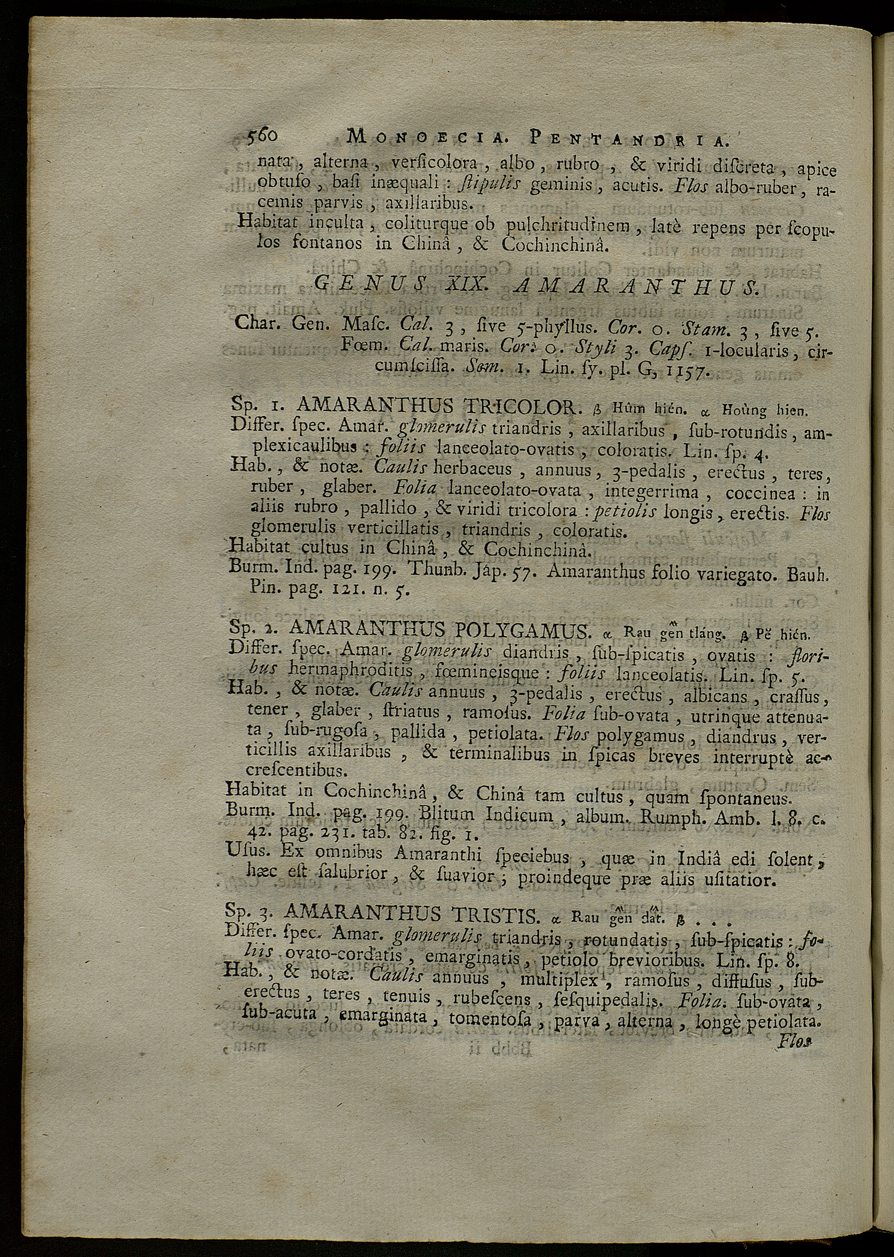 560 MONOECIA. PENTANDRIA.
nata, alterna, verſicolora, albo, rubro, & viridi diſcreta, apice
obtuſo, baſi inæquali: ſtipulis geminis, acutis. Flos albo-ruber, ra-
cemis parvis, axillaribus.
Habitat inculta, coliturque ob pulchritudinem, latè repens per ſcopu-
los fontanos in Chinâ, & Cochinchinâ.
GENUS XIX. AMARANTHUS.
Char. Gen. Maſc. Cal. 3, ſive 5-phyllus. Cor. 0. Stam. 3, ſive 5.
Fœm. Cal. maris. Cor. 0. Styli 3. Capſ. 1-locularis, cir-
cumſciſſa. Sem. 1. Lin. ſy. pl. G, 1157.
Sp. 1. AMARANTHUS TRICOLOR. β Hûm hién. α Hoûng hien.
Differ. ſpec. Amar. glomerulis triandris, axillaribus, ſub-rotundis, am-
plexicaulibus: foliis lanceolato-ovatis, coloratis. Lin. ſp. 4.
Hab., & notæ. Caulis herbaceus, annuus, 3-pedalis, erectus, teres,
ruber, glaber. Folia lanceolato-ovata, integerrima, coccinea: in
aliis rubro, pallido, & viridi tricolora: petiolis longis, erectis. Flos
glomerulis verticillatis, triandris, coloratis.
Habitat cultus in Chinâ, & Cochinchinâ.
Burm. Ind. pag. 199. Thunb. Jap. 57. Amaranthus folio variegato. Bauh.
Pin. pag. 121. n. 5.
Sp. 2. AMARANTHUS POLYGAMUS. α Rau gên tláng. β Pĕ hién.
Differ. ſpec. Amar. glomerulis diandris, ſub-ſpicatis, ovatis: flori-
bus hermaphroditis, fœmineiſque: foliis lanceolatis. Lin. ſp. 5.
Hab., & notæ. Caulis annuus, 3-pedalis, erectus, albicans, craſſus,
tener, glaber, ſtriatus, ramoſus. Folia ſub-ovata, utrinque attenua-
ta, ſub-rugoſa, pallida, petiolata. Flos polygamus, diandrus, ver-
ticillis axillaribus, & terminalibus in ſpicas breves interruptè ac-
creſcentibus.
Habitat in Cochinchinâ, & Chinâ tam cultus, quam ſpontaneus.
Burm. Ind. pag. 199. Blitum Indicum, album. Rumph. Amb. l. 8. c.
42. pag. 231. tab. 82. fig. 1.
Uſus. Ex omnibus Amaranthi ſpeciebus, quæ in Indiâ edi ſolent,
hæc eſt ſalubrior, & ſuavior; proindeque præ aliis uſitatior.
Sp. 3. AMARANTHUS TRISTIS. α Rau gên dât. β . . .
Differ. ſpec. Amar. glomerulis triandris, rotundatis, ſub-ſpicatis: fo-
liis ovato-cordatis, emarginatis, petiolo brevioribus. Lin. ſp. 8.
Hab., & notæ. Caulis annuus, multiplex, ramoſus, diffuſus, ſub-
erectus, teres, tenuis, rubeſcens, ſeſquipedalis. Folia ſub-ovata,
ſub-acuta, emarginata, tomentoſa, parva, alterna, longè petiolata.
Flos